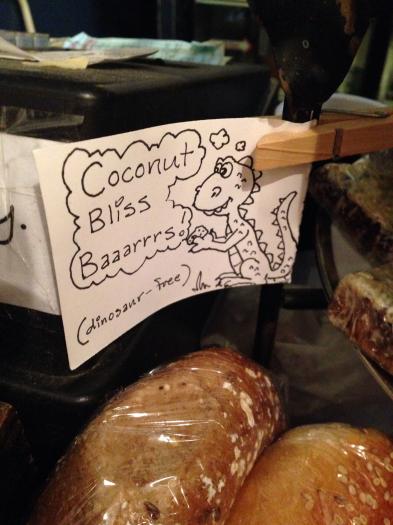 Coconut
Bliss
Baaarrrs.
(dinosaur-free)